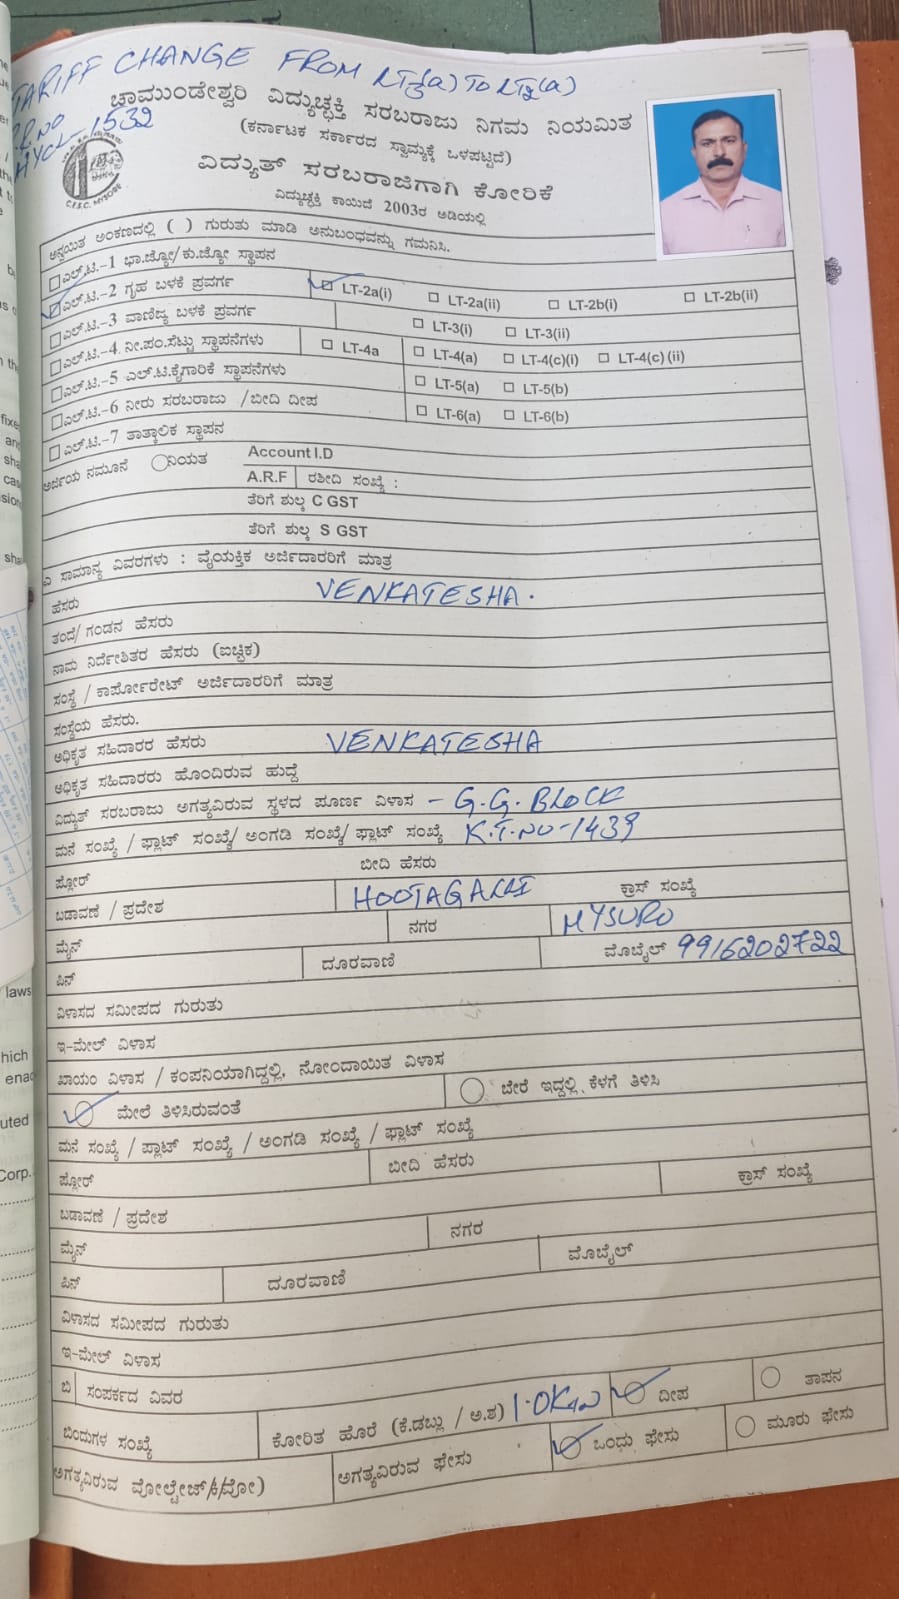 TARIFF CHANGE FROM LT3(a) TO LT2(a)
R.R.NO
HYCL-1532
ಚಾಮುಂಡೇಶ್ವರಿ ವಿದ್ಯುಚ್ಛಕ್ತಿ ಸರಬರಾಜು ನಿಗಮ ನಿಯಮಿತ
(ಕರ್ನಾಟಕ ಸರ್ಕಾರದ ಸ್ವಾಮ್ಯಕ್ಕೆ ಒಳಪಟ್ಟಿದೆ)
ವಿದ್ಯುತ್ ಸರಬರಾಜಿಗಾಗಿ ಕೋರಿಕೆ
C.E.S.C. MYSORE
ವಿದ್ಯುಚ್ಛಕ್ತಿ ಕಾಯಿದೆ 2003ರ ಅಡಿಯಲ್ಲಿ
ಅನ್ವಯಿತ ಅಂಕಣದಲ್ಲಿ ( ) ಗುರುತು ಮಾಡಿ ಅನುಬಂಧವನ್ನು ಗಮನಿಸಿ.
ಎಲ್.ಟಿ.-1 ಭಾ.ಜ್ಯೋ/ಕು.ಜ್ಯೋ ಸ್ಥಾಪನ
ಎಲ್.ಟಿ.-2 ಗೃಹ ಬಳಕೆ ಪ್ರವರ್ಗ LT-2a(i) LT-2a(ii) LT-2b(i) LT-2b(ii)
ಎಲ್.ಟಿ.-3 ವಾಣಿಜ್ಯ ಬಳಕೆ ಪ್ರವರ್ಗ LT-3(i) LT-3(ii)
ಎಲ್.ಟಿ.-4 ನೀ.ಪಂ.ಸೆಟ್ಟು ಸ್ಥಾಪನೆಗಳು LT-4a LT-4(a) LT-4(c)(i) LT-4(c)(ii)
ಎಲ್.ಟಿ.-5 ಎಲ್.ಟಿ.ಕೈಗಾರಿಕೆ ಸ್ಥಾಪನೆಗಳು LT-5(a) LT-5(b)
ಎಲ್.ಟಿ.-6 ನೀರು ಸರಬರಾಜು /ಬೀದಿ ದೀಪ LT-6(a) LT-6(b)
ಎಲ್.ಟಿ.-7 ತಾತ್ಕಾಲಿಕ ಸ್ಥಾಪನ
ಅರ್ಜಿಯ ನಮೂನೆ ನಿಯತ Account I.D
A.R.F ರಶೀದಿ ಸಂಖ್ಯೆ :
ತೆರಿಗೆ ಶುಲ್ಕ C GST
ತೆರಿಗೆ ಶುಲ್ಕ S GST
ಎ ಸಾಮಾನ್ಯ ವಿವರಗಳು : ವೈಯಕ್ತಿಕ ಅರ್ಜಿದಾರರಿಗೆ ಮಾತ್ರ
ಹೆಸರು VENKATESHA.
ತಂದೆ/ಗಂಡನ ಹೆಸರು
ನಾಮ ನಿರ್ದೇಶಿತರ ಹೆಸರು (ಐಚ್ಛಿಕ)
ಸಂಸ್ಥೆ / ಕಾರ್ಪೋರೇಟ್ ಅರ್ಜಿದಾರರಿಗೆ ಮಾತ್ರ
ಸಂಸ್ಥೆಯ ಹೆಸರು.
ಅಧಿಕೃತ ಸಹಿದಾರರ ಹೆಸರು VENKATESHA
ಅಧಿಕೃತ ಸಹಿದಾರರು ಹೊಂದಿರುವ ಹುದ್ದೆ
ವಿದ್ಯುತ್ ಸರಬರಾಜು ಅಗತ್ಯವಿರುವ ಸ್ಥಳದ ಪೂರ್ಣ ವಿಳಾಸ - G.G.BLOCK
ಮನೆ ಸಂಖ್ಯೆ / ಫ್ಲಾಟ್ ಸಂಖ್ಯೆ/ ಅಂಗಡಿ ಸಂಖ್ಯೆ/ ಫ್ಲಾಟ್ ಸಂಖ್ಯೆ K.T.NO-1439
ಫ್ಲೋರ್ ಬೀದಿ ಹೆಸರು
ಬಡಾವಣೆ / ಪ್ರದೇಶ HOOTAGALLI ಕ್ರಾಸ್ ಸಂಖ್ಯೆ
ಮೈನ್ ನಗರ MYSURO
ಪಿನ್ ದೂರವಾಣಿ ಮೊಬೈಲ್ 9916202722
ವಿಳಾಸದ ಸಮೀಪದ ಗುರುತು
ಇ-ಮೇಲ್ ವಿಳಾಸ
ಖಾಯಂ ವಿಳಾಸ / ಕಂಪನಿಯಾಗಿದ್ದಲ್ಲಿ, ನೋಂದಾಯಿತ ವಿಳಾಸ
ಮೇಲೆ ತಿಳಿಸಿರುವಂತೆ ಬೇರೆ ಇದ್ದಲ್ಲಿ ಕೆಳಗೆ ತಿಳಿಸಿ
ಮನೆ ಸಂಖ್ಯೆ / ಪ್ಲಾಟ್ ಸಂಖ್ಯೆ / ಅಂಗಡಿ ಸಂಖ್ಯೆ / ಫ್ಲಾಟ್ ಸಂಖ್ಯೆ
ಫ್ಲೋರ್ ಬೀದಿ ಹೆಸರು ಕ್ರಾಸ್ ಸಂಖ್ಯೆ
ಬಡಾವಣೆ / ಪ್ರದೇಶ
ಮೈನ್ ನಗರ
ಪಿನ್ ದೂರವಾಣಿ ಮೊಬೈಲ್
ವಿಳಾಸದ ಸಮೀಪದ ಗುರುತು
ಇ-ಮೇಲ್ ವಿಳಾಸ
ಬಿ ಸಂಪರ್ಕದ ವಿವರ
ಬಿಂದುಗಳ ಸಂಖ್ಯೆ ಕೋರಿತ ಹೊರೆ (ಕೆ.ಡಬ್ಲು / ಅ.ಶ) 1.0KW ದೀಪ ತಾಪನ
ಅಗತ್ಯವಿರುವ ವೋಲ್ಟೇಜ್ ಅಗತ್ಯವಿರುವ ಫೇಸು ಒಂದು ಫೇಸು ಮೂರು ಫೇಸು